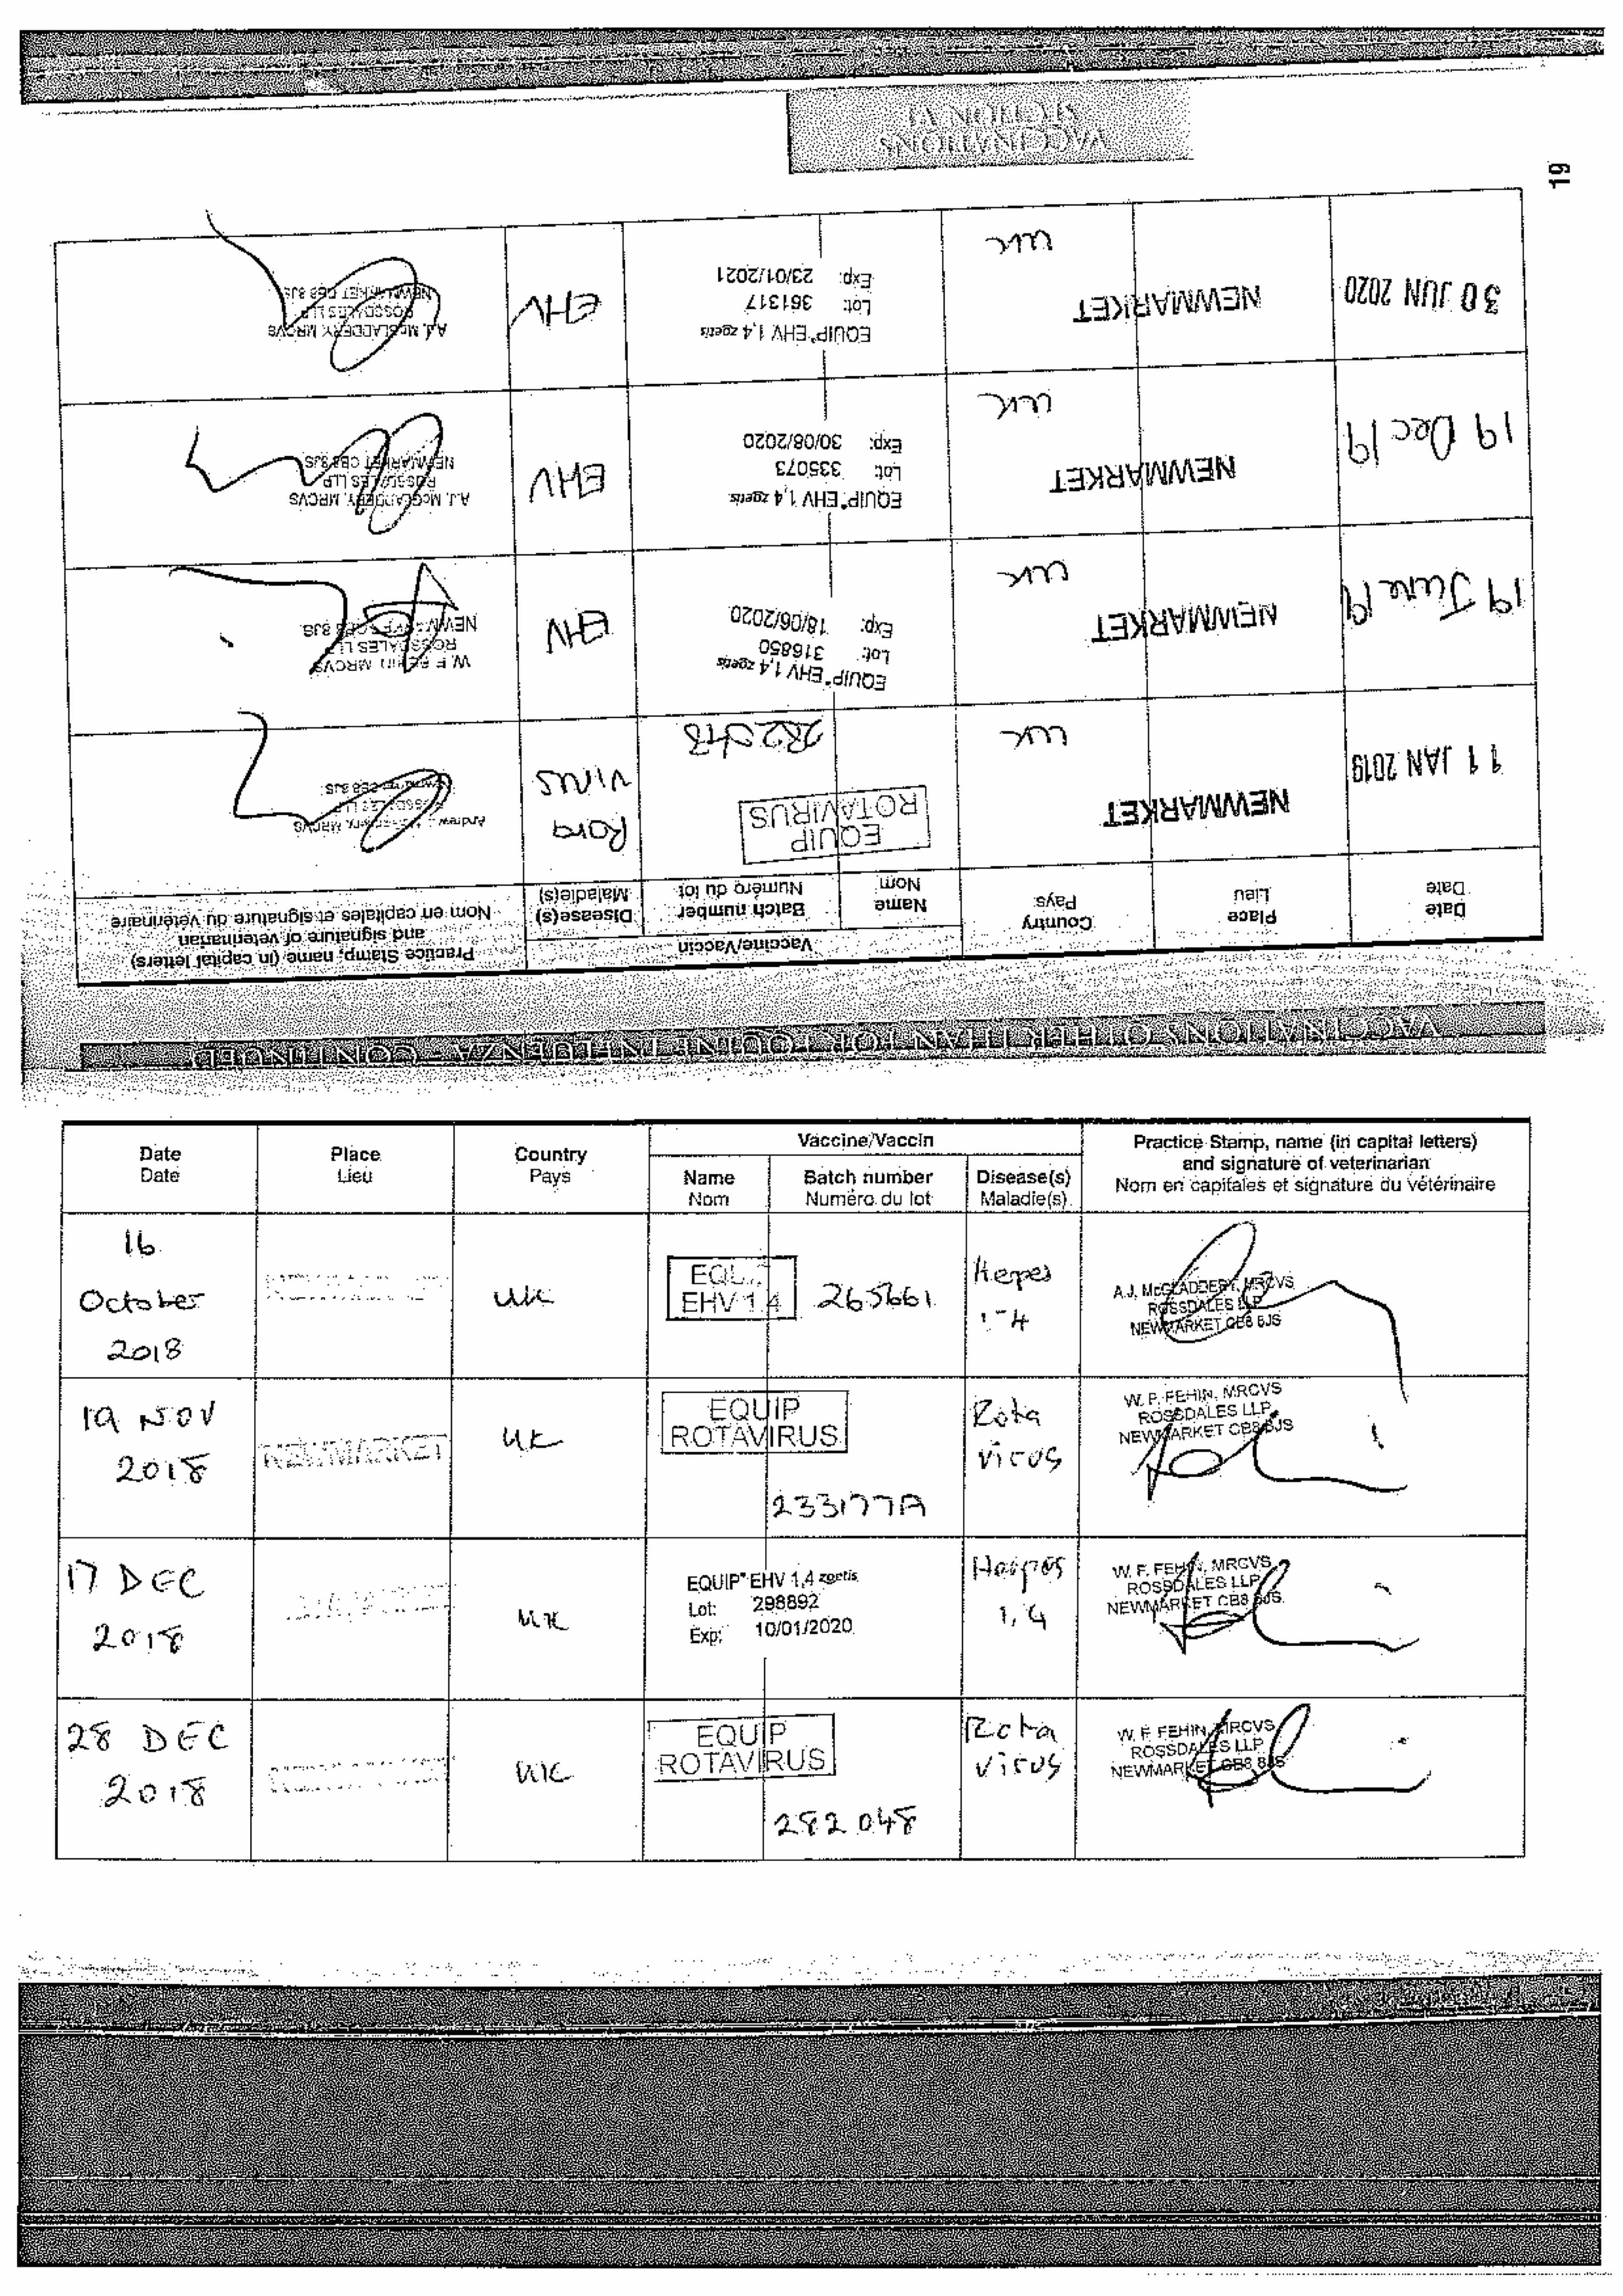 VACCINATIONS
SECTION VI
19
VACCINATIONS OTHER THAN FOR EQUINE INFLUENZA - CONTINUED
Date
Date
Place
Lieu
Country
Pays
Vaccine/Vaccin
Name
Nom
Batch number
Numéro du lot
Disease(s)
Maladie(s)
Practice Stamp, name (in capital letters)
and signature of veterinarian
Nom en capitales et signature du vétérinaire
11 JAN 2019
NEWMARKET
UK
EQUIP
ROTAVIRUS
282048
Rota
virus
Andrew MRCVS
ROSSDALES LLP
NEWMARKET CB8 8JS
19 June 19
NEWMARKET
UK
EQUIP® EHV 1,4 zoetis
Lot: 316850
Exp: 18/06/2020
EHV
W. F. FEHIN MRCVS
ROSSDALES LLP
NEWMARKET CB8 8JS
19 Dec 19
NEWMARKET
UK
EQUIP® EHV 1,4 zoetis
Lot: 335073
Exp: 30/08/2020
EHV
A.J. McGLADDERY, MRCVS
ROSSDALES LLP
NEWMARKET CB8 8JS
30 JUN 2020
NEWMARKET
UK
EQUIP® EHV 1,4 zoetis
Lot: 361317
Exp: 23/01/2021
EHV
A.J. McGLADDERY MRCVS
ROSSDALES LLP
NEWMARKET CB8 8JS
Date
Date
Place
Lieu
Country
Pays
Vaccine/Vaccin
Name
Nom
Batch number
Numéro du lot
Disease(s)
Maladie(s)
Practice Stamp, name (in capital letters)
and signature of veterinarian
Nom en capitales et signature du vétérinaire
16
October
2018
UK
EHV 1,4
265661
Herpes
1-4
A.J. McGLADDERY, MRCVS
ROSSDALES LLP
NEWMARKET CB8 8JS
19 NOV
2018
NEWMARKET
UK
EQUIP
ROTAVIRUS
233177A
Rota
virus
W. F. FEHIN, MRCVS
ROSSDALES LLP
NEWMARKET CB8 8JS
17 DEC
2018
UK
EQUIP® EHV 1,4 zoetis
Lot: 298892
Exp: 10/01/2020
Herpes
1,4
W. F. FEHIN, MRCVS
ROSSDALES LLP
NEWMARKET CB8 8JS
28 DEC
2018
UK
EQUIP
ROTAVIRUS
282048
Rota
virus
W. F. FEHIN, MRCVS
ROSSDALES LLP
NEWMARKET CB8 8JS